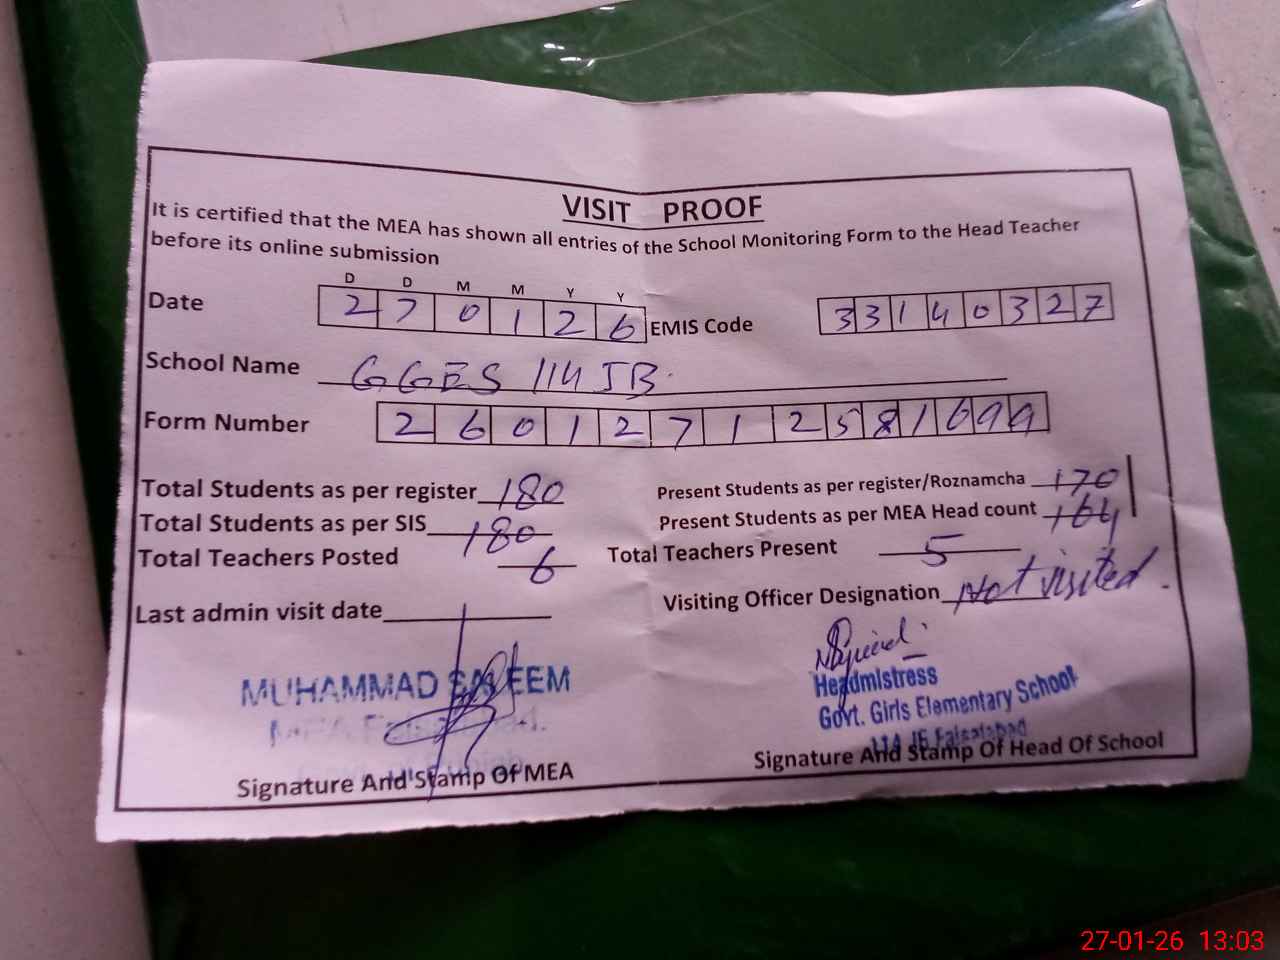 VISIT PROOF
It is certified that the MEA has shown all entries of the School Monitoring Form to the Head Teacher
before its online submission
D D M M Y Y
Date 2 7 0 1 2 6 EMIS Code 3 3 1 4 0 3 2 7
School Name GGES 114 JB
Form Number 2 6 0 1 2 7 1 2 5 8 1 6 9 9
Total Students as per register 180 Present Students as per register/Roznamcha 170
Total Students as per SIS 180 Present Students as per MEA Head count 164
Total Teachers Posted 6 Total Teachers Present 5
Last admin visit date Visiting Officer Designation Not visited
MUHAMMAD SALEEM
MEA Faisalabad.
Headmistress
Govt. Girls Elementary School
114 JB Faisalabad
Signature And Stamp Of MEA Signature And Stamp Of Head Of School
27-01-26 13:03